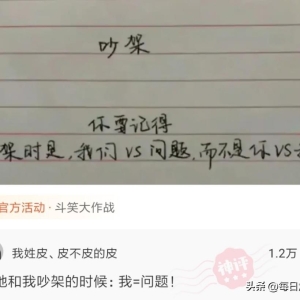 吵架
你要记得
架时是,我们 VS 问题,而不是你VS
官方活动 · 斗笑大作战
我姓皮、皮不皮的皮
神评
1.2万
和我吵架的时候:我=问题!
头条 @每日